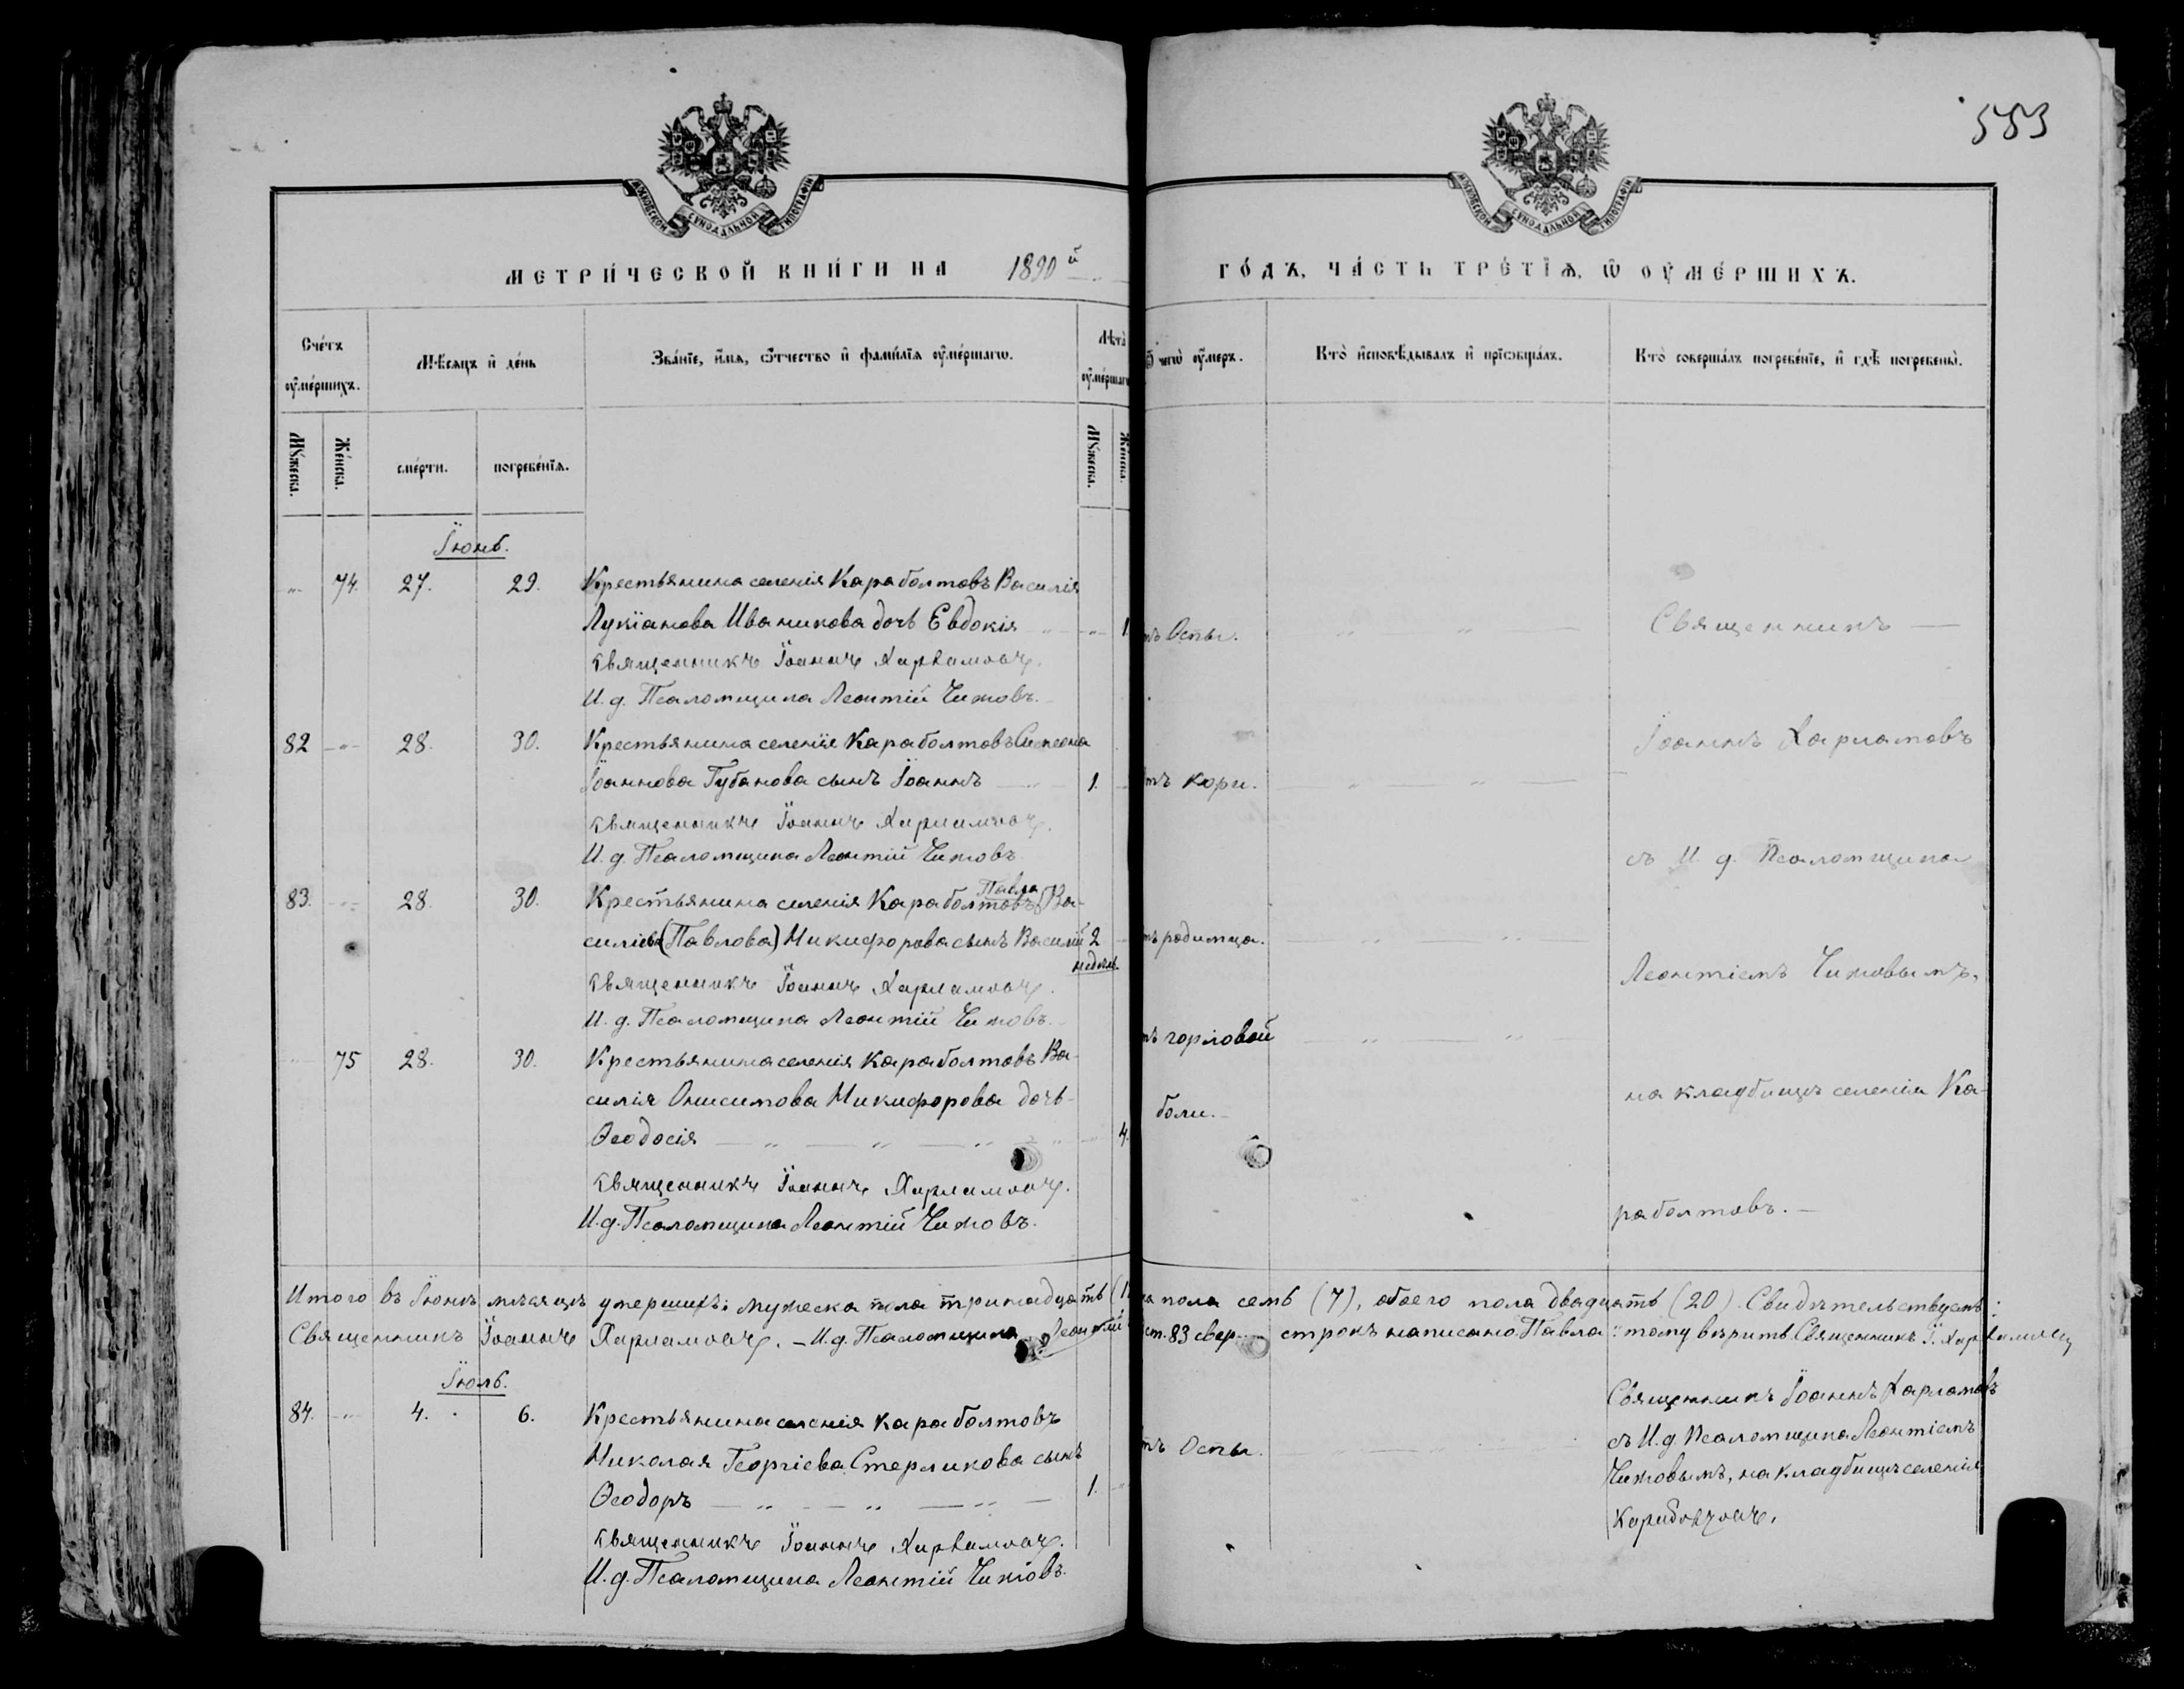 553
МЕТРИ́ЧЕСКОЙ КНИ́ГИ НА 1890й
ГО́ДЪ, ЧА́СТЬ ТРЕ́ТЇѦ, Ѡ ОУ҆МЕ́РШИХЪ.
Сче́тъ оу҆ме́ршихъ.
Мѣ́сѧцъ и҆ де́нь
Зва́нїе, и҆́мѧ, ѻ҆́тчество и҆ фами́лїѧ оу҆ме́ршагѡ.
Лѣта̀ оу҆ме́ршагѡ
чегѡ̀ оу҆́меръ.
Кто̀ и҆сповѣ́дывалъ и҆ прїѡбща́лъ.
Кто̀ соверша́лъ погребе́нїе, и҆ гдѣ̀ погребены̀.
Мꙋ́жеска.
Же́нска.
сме́рти.
погребе́нїѧ.
Мꙋ́жеска.
Іюнь.
74. 27. 29. Крестьянина селенія Караболтовъ Василія
Лукіанова Иваникова дочь Евдокія 1. Оспы.
Священникъ Іоаннъ Харламовъ.
И. д. Псаломщика Леонтій Чижовъ.
82 28. 30. Крестьянина селенія Караболтовъ Симеона
Іоаннова Губанова сынъ Іоаннъ 1. тъ кори.
Священникъ Іоаннъ Харламовъ.
И. д. Псаломщика Леонтій Чижовъ.
83. 28. 30. Крестьянина селенія Караболтовъ Павла Ва-
силіева (Павлова) Никифорова сынъ Василій 2 недѣль тъ родимца.
Священникъ Іоаннъ Харламовъ.
И. д. Псаломщика Леонтій Чижовъ.
75 28. 30. Крестьянина селенія Караболтовъ Ва- тъ горловой
силія Онисимова Никифорова дочь боли.
Ѳеодосія 4.
Священникъ Іоаннъ Харламовъ.
И. д. Псаломщика Леонтій Чижовъ.
Священникъ
Іоаннъ Харламовъ
съ И. д. Псаломщика
Леонтіемъ Чижовымъ,
на кладбищѣ селенія Ка-
раболтовъ.
Итого въ Іюнѣ мѣсяцѣ умершихъ: мужеска пола тринадцать (1 ка пола семь (7), обоего пола двадцать (20). Свидѣтельствуемъ:
Священникъ Іоаннъ Харламовъ. И. д. Псаломщика Леонтій ст. 83 свер строкъ написано Павла тому вѣрить. Священникъ І. Харламовъ
Іюль.
84. 4. 6. Крестьянина селенія Караболтовъ
Николая Георгіева Стерликова сынъ тъ Оспы.
Ѳеодоръ 1.
Священникъ Іоаннъ Харламовъ.
И. д. Псаломщика Леонтій Чижовъ.
Священникъ Іоаннъ Харламовъ
съ И. д. Псаломщика Леонтіемъ
Чижовымъ, на кладбищѣ селенія
Караболтовъ.